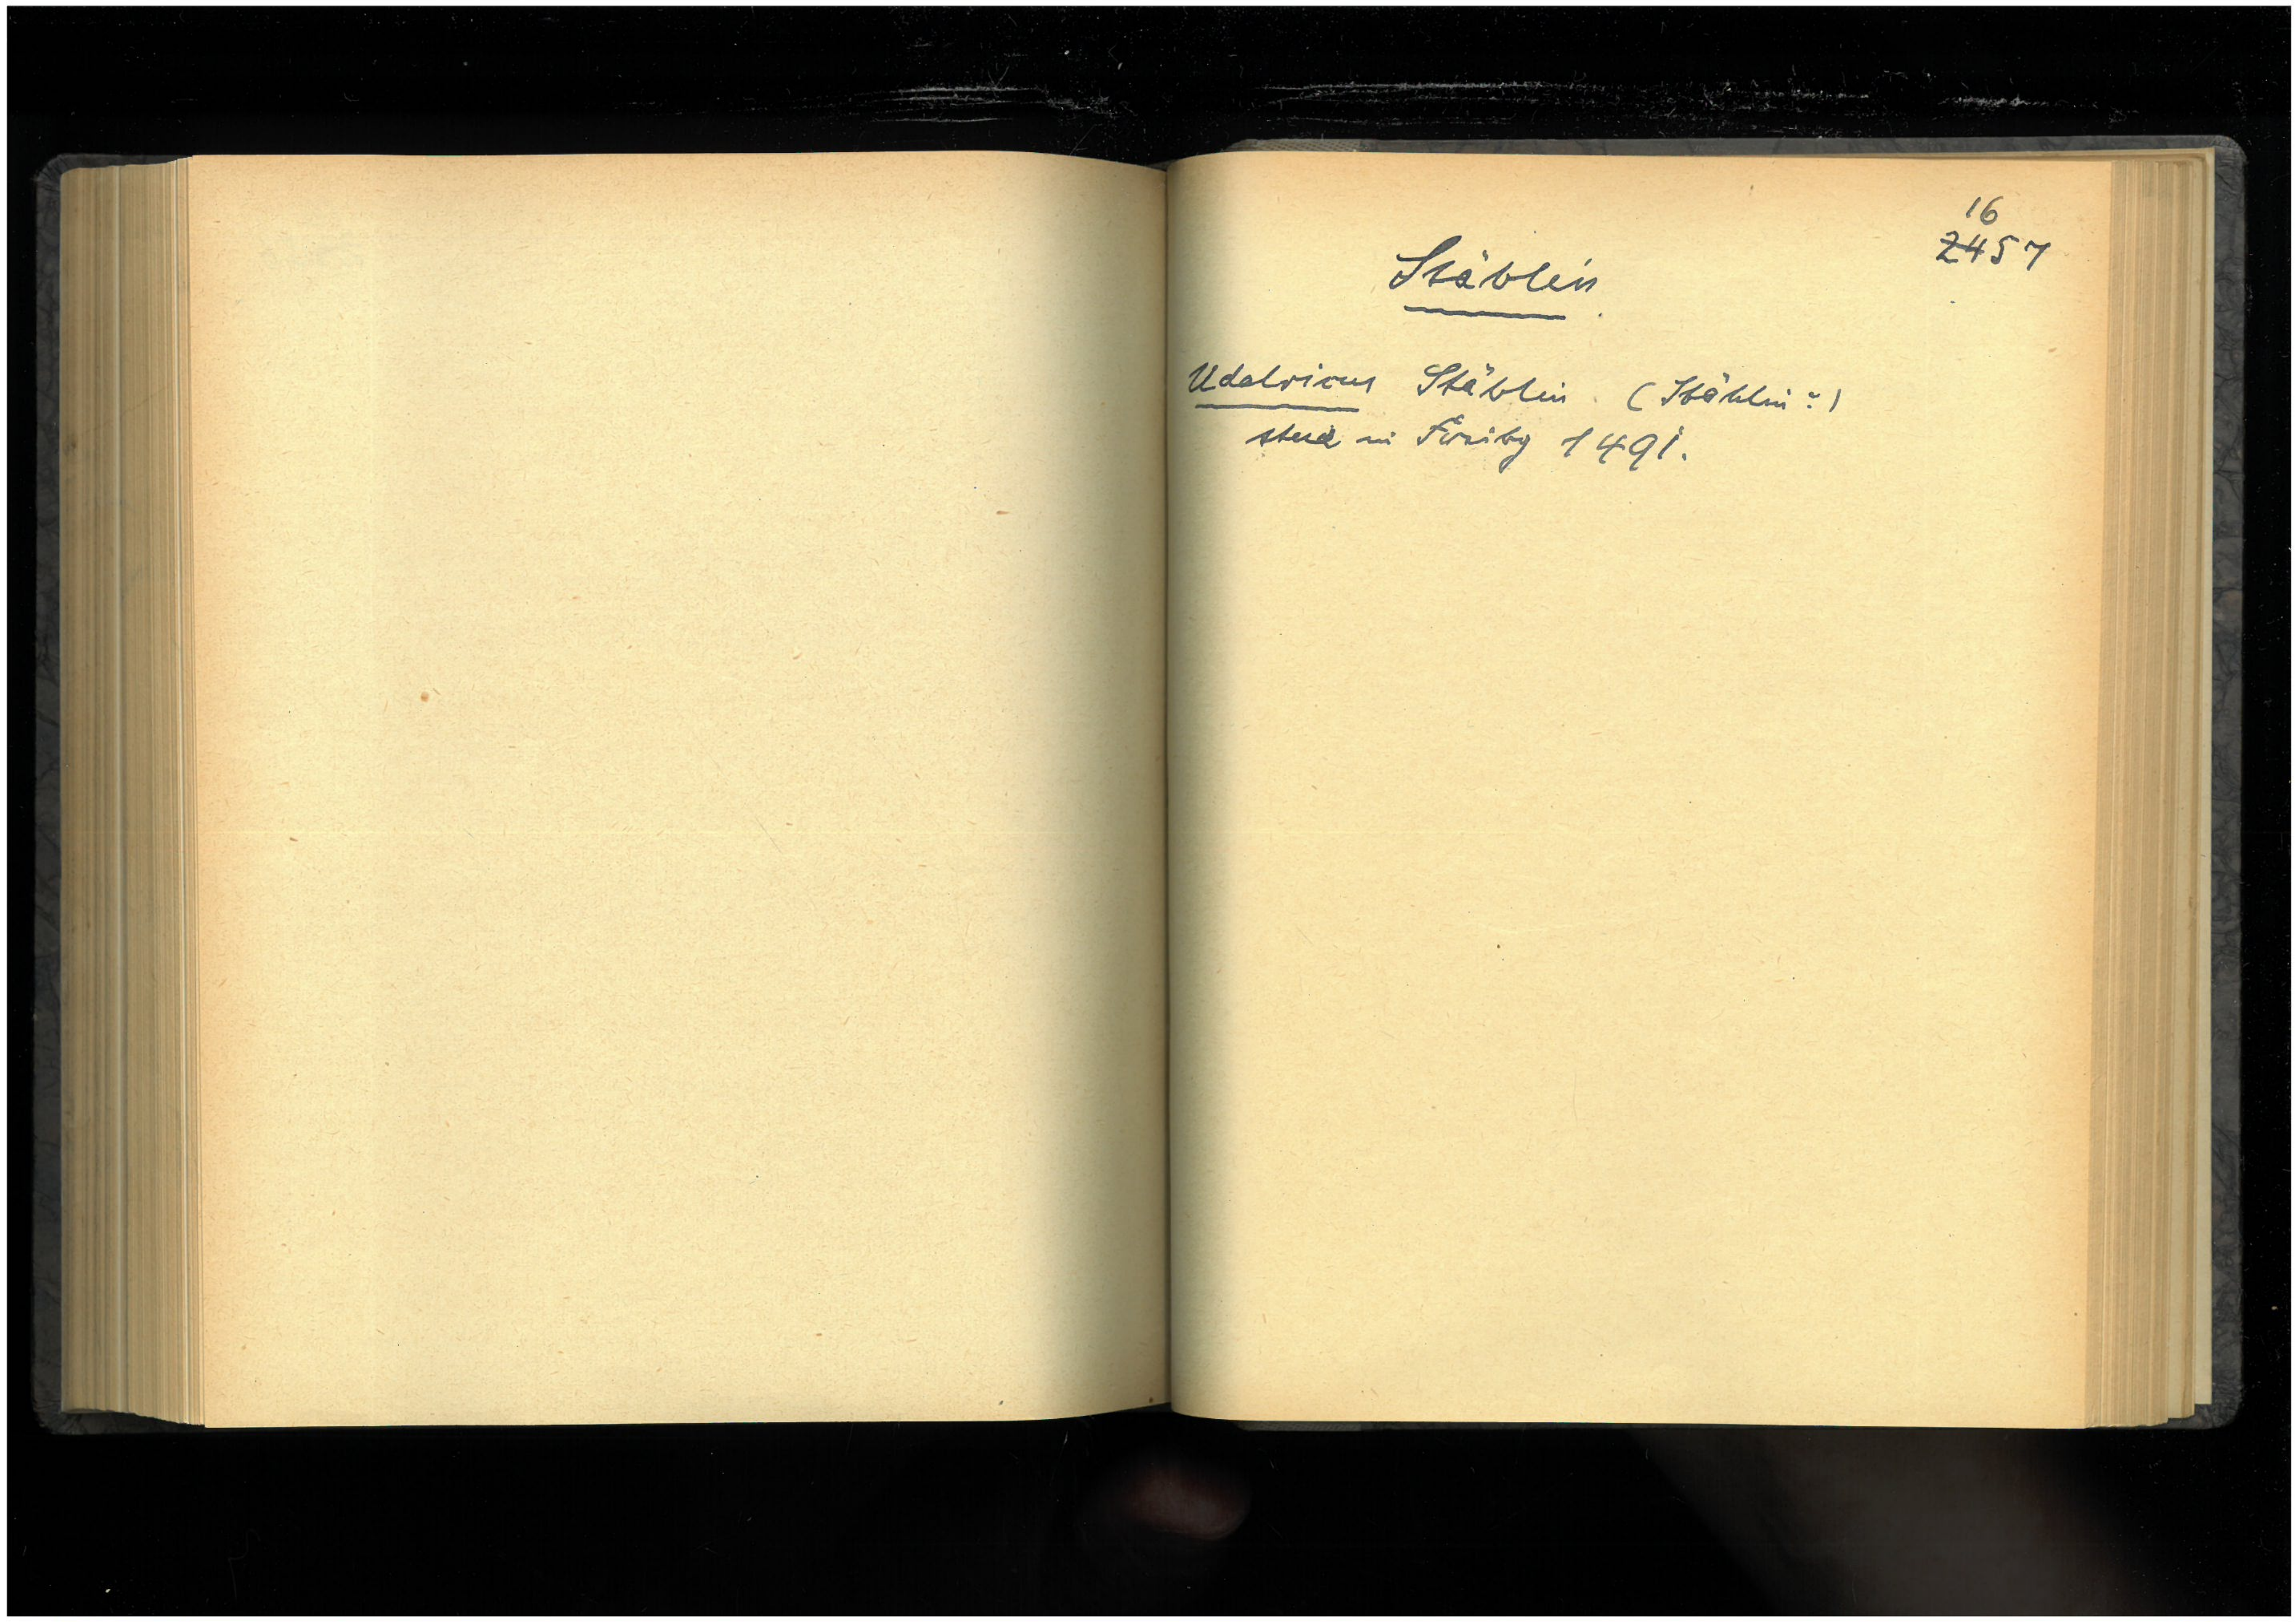 16
2457
Stäblin
Udalricus Stäblin. (Stählin?)
stud in Freibg 1491.